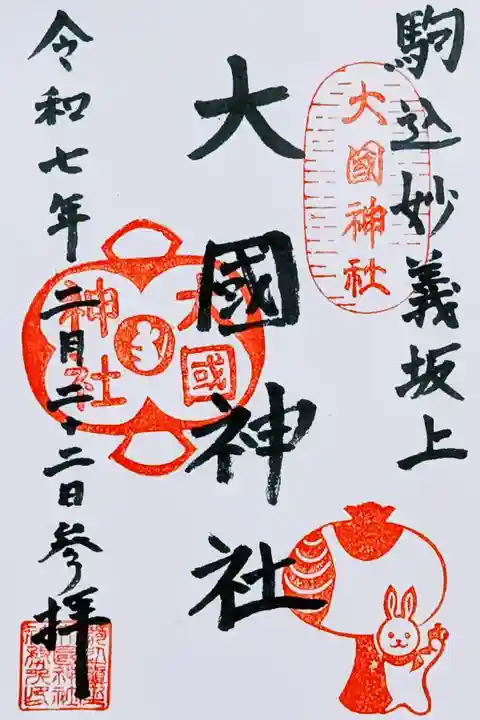 駒込妙義坂上
大国神社
大國神社
大國
神社
令和七年二月二十二日参拝